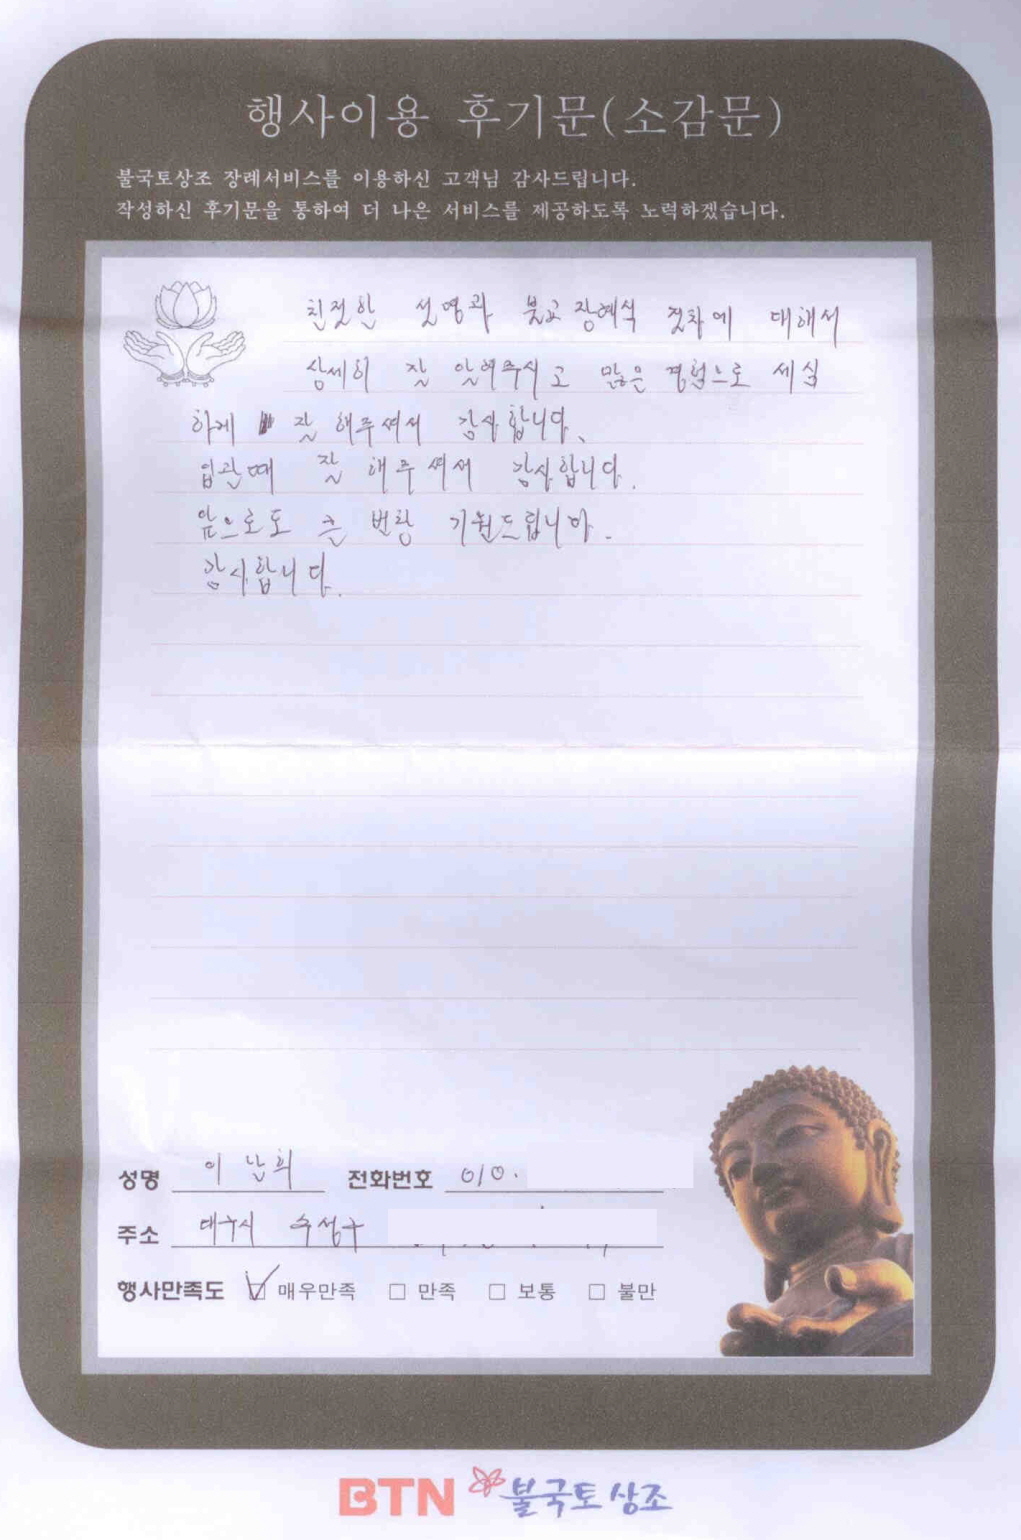 행사이용 후기문(소감문)
불국토상조 장례서비스를 이용하신 고객님 감사드립니다.
작성하신 후기문을 통하여 더 나은 서비스를 제공하도록 노력하겠습니다.
친절한 설명과 불교장례식 절차에 대해서
상세히 잘 알려주시고 많은 경험으로 세심
하게 잘 해주셔서 감사합니다.
입관때 잘 해주셔서 감사합니다.
앞으로도 큰 번창 기원드립니다.
감사합니다.
성명 이남희 전화번호 010.
주소 대구시 수성구
행사만족도 ☑ 매우만족 □ 만족 □ 보통 □ 불만
BTN 불국토상조